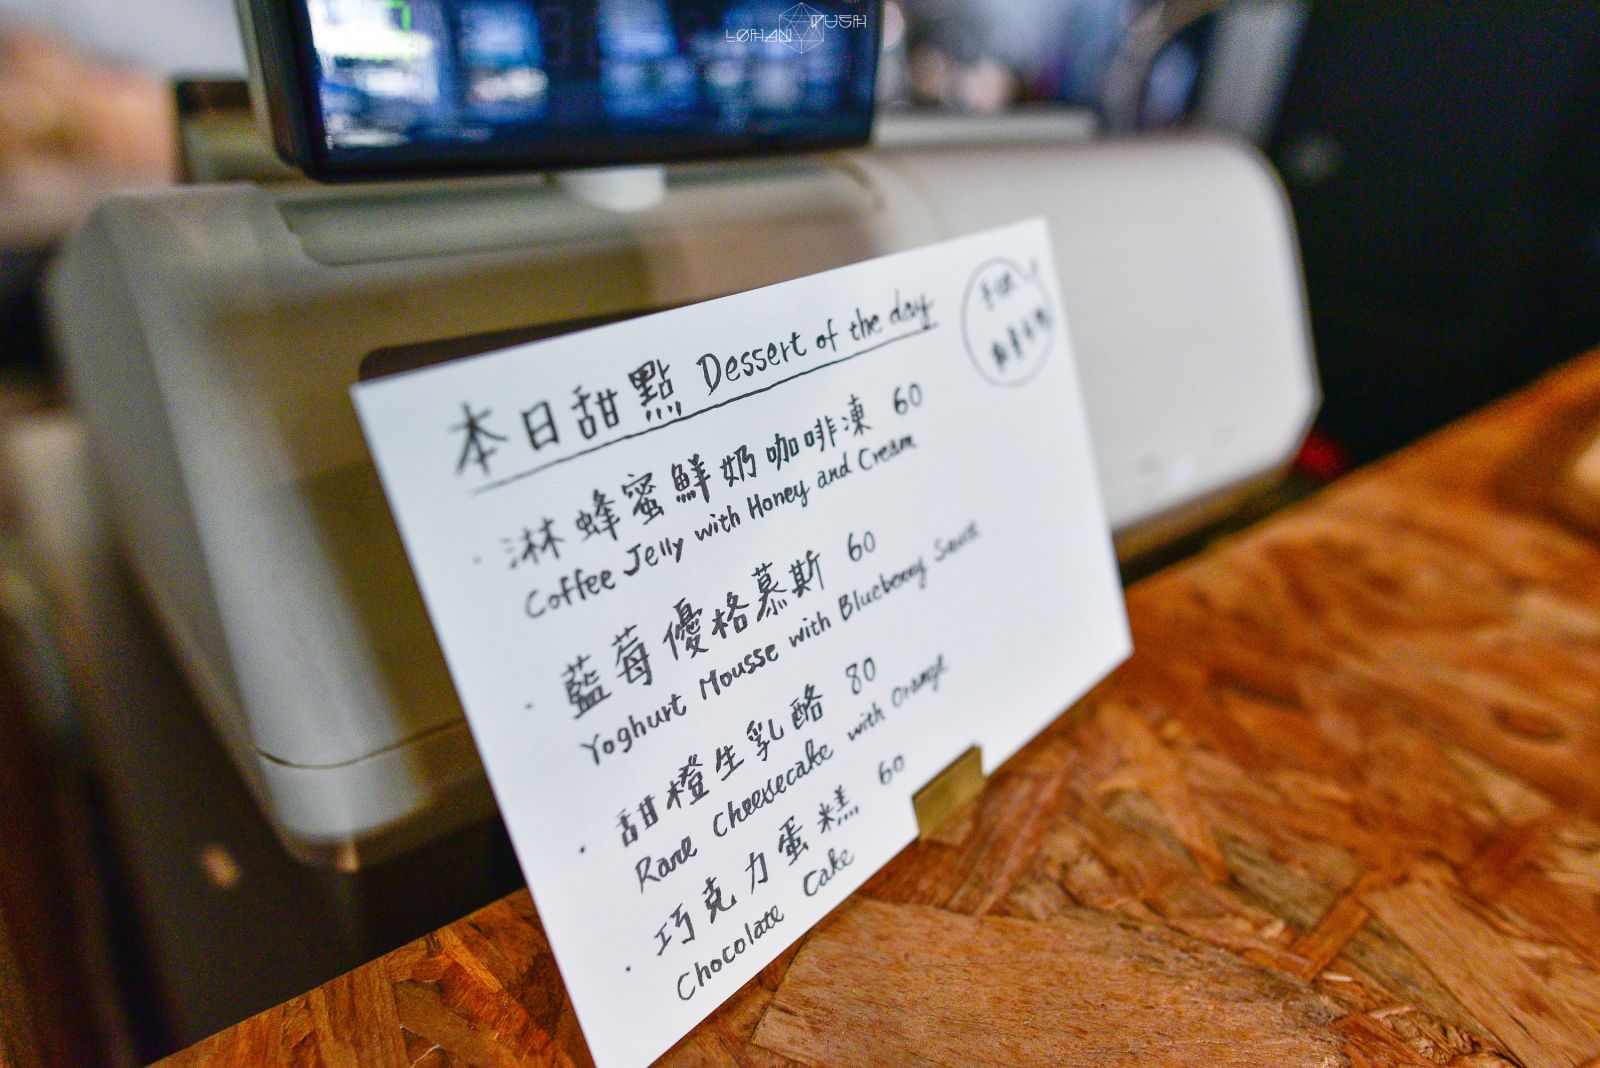 LOHAN PUSH
本日甜點 Dessert of the day
· 淋蜂蜜鮮奶咖啡凍 60
Coffee Jelly with Honey and Cream
· 藍莓優格慕斯 60
Yoghurt Mousse with Blueberry Sauce
· 甜橙生乳酪 80
Rare Cheesecake with Orange
· 巧克力蛋糕 60
Chocolate Cake